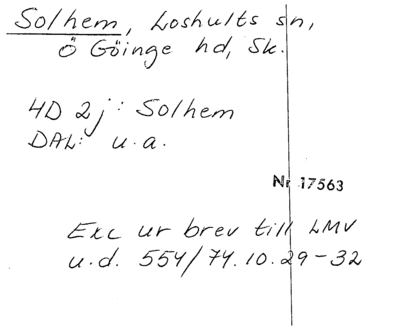 Solhem, Loshults sn,
Ö Göinge hd, Sk.
4D 2j: Solhem
DAL: u.a.
Nr 17563
Exc ur brev till LMV
u.d. 554/74.10.29-32